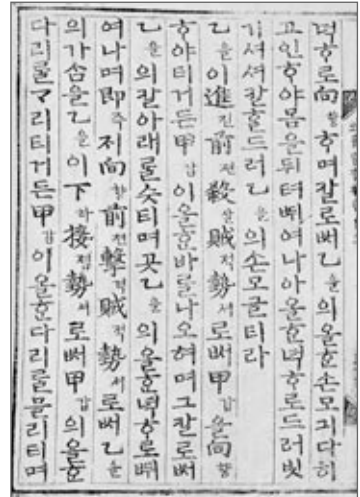 녁ᄒᆞ로向향ᄒᆞ며칼로ᄡᅥ乙을의올ᄒᆞᆫ손모긔다히
고인ᄒᆞ야몸을뒤텨ᄠᅱ여나아올ᄒᆞᆫ녁ᄒᆞ로드러빗
기셔셔칼흘드러乙을의손모글티라
乙을이進진前젼殺살賊적勢셔로甲갑을向향
ᄒᆞ야티거든甲갑이올ᄒᆞᆫ바ᄅᆞᆯ나오혀며그칼로ᄡᅥ
乙을의칼아래ᄅᆞᆯ슷티며곳乙을의올ᄒᆞᆫ녁ᄒᆞ로ᄠᅱ
여나며即즉지向향前젼擊격賊적勢셔로ᄡᅥ乙을
의가ᄉᆞᆷ을乙을이下하接졉勢셔로ᄡᅥ甲갑의올ᄒᆞᆫ
다리ᄅᆞᆯᄀᆞ리티거든甲갑이올ᄒᆞᆫ다리ᄅᆞᆯ믈리티며